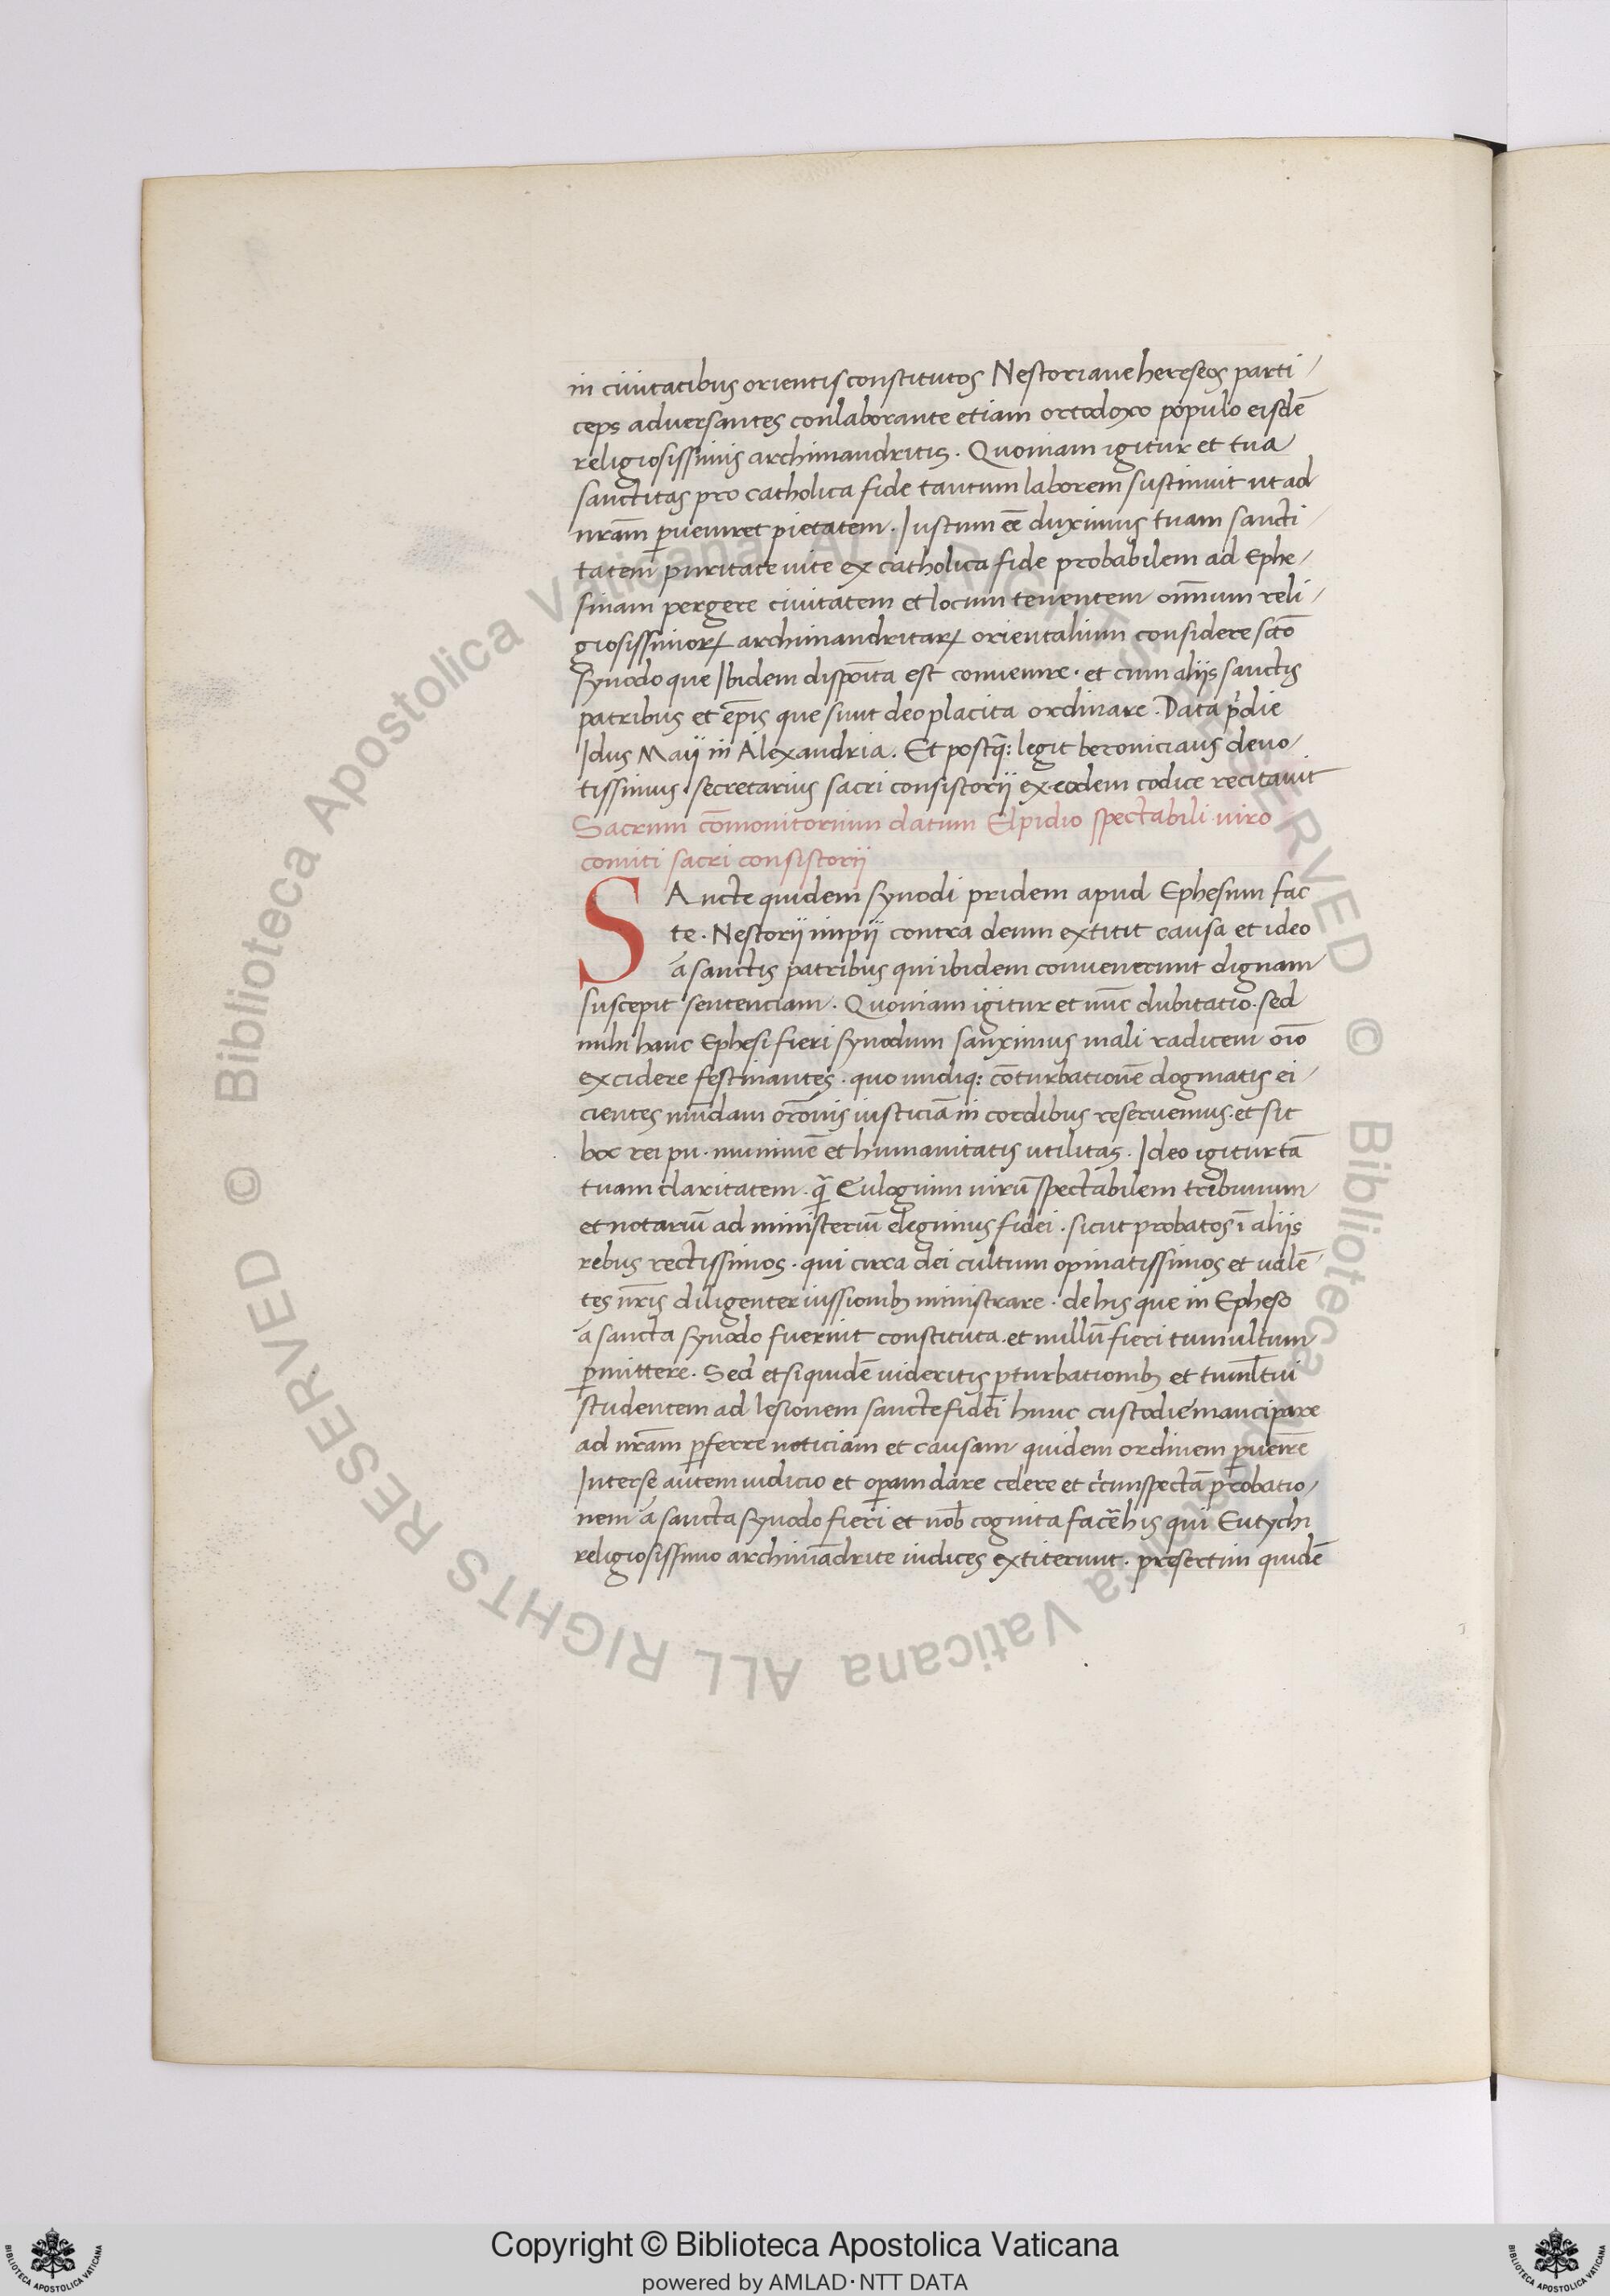 in ciuitatibus orientis constitutos Nestoriane hereseos parti/
ceps adversantes conlaborante etiam ortodoxo populo eisdē
religiosissimis archimandritis. Quoniam igitur et tua
sanctitas pro catholica fide tantum laborem sustinuit ut ad
nrām ꝑueniret pietatem. Iustum eē duximus tuam sancti/
tatem puritate uite ex catholica fide probabilem ad Ephe/
sinam pergere ciuitatem et locum tenentem omnium reli/
giosissimoꝝ archimandritaꝝ orientalium considere sctō
synodo que Ibidem disposita est conuenire. et cum aliis sanctis
patribus et ep̄is que sunt deo placita ordinare. Data pͥdie
Idus Maii in Alexandria. Et postq̄: legit beronicianus deuo/
tissimus secretarius sacri consistorii ex eodem codice recitauit
Sacrum cōmonitorium datum Elpidio spectabili uiro
comiti sacri consistorii
SAncte quidem synodi pridem apud Ephesum fac
te. Nestorii impii contra deum extitit causa et ideo
a sanctis patribus qui ibidem conuenerunt dignam
suscepit sentenciam. Quoniam igitur et nūc dubitatio. sed
mihi hanc Ephesi fieri synodum sanximus mali radicem oīo
excidere festinantes. quo undiq: cōturbationē dogmatis ei/
cientes nudam iusticiā in cordibus reseruemus. et sit
hoc rei pu. munimē et humanitatis utilitas. Ideo igitur tā
tuam claritatem. q̄ Eulogium uirū spectabilem tribunum
et notariū ad ministeriū elegimus fidei. sicut probatos ī aliis
rebus rectissimos. qui circa dei cultum opinatissimos et ualē/
tes nr̄is diligenter iussionib; ministrare. de his que in Epheso
a sancta synodo fuerint constituta. et nullū fieri tumultum
ꝑmittere. Sed et si quidē uideritis ꝑturbationib; et tumltui
studentem ad lesionem sancte fidei hunc custodie mancipare
ad nrām ꝑferre noticiam et causam quidem ordinem ꝑuenire
Inter se autem iudicio et oꝑam dare celere et cͥcunspectā probatio/
nem a sancta synodo fieri et nob cognita facē his qui Eutychi
religiosissimo archimādrite iudices extiterunt. presertim quidē
Biblioteca Apostolica Vaticana ALL RIGHTS RESERVED ©
Biblioteca Apostolica Vaticana ALL RIGHTS RESERVED ©
Copyright © Biblioteca Apostolica Vaticana
powered by AMLAD·NTT DATA
BIBLIOTECA APOSTOLICA VATICANA
BIBLIOTECA APOSTOLICA VATICANA